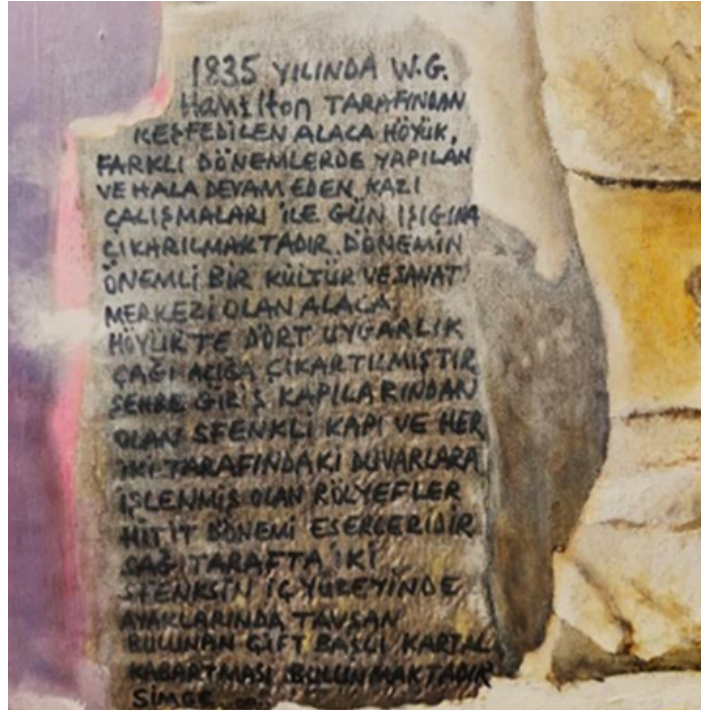 1835 YILINDA W.G.
Hamilton TARAFINDAN
KEŞFEDİLEN ALACA HÖYÜK,
FARKLI DÖNEMLERDE YAPILAN
VE HALA DEVAM EDEN KAZI
ÇALIŞMALARI İLE GÜN IŞIĞINA
ÇIKARILMAKTADIR. DÖNEMİN
ÖNEMLİ BİR KÜLTÜR VE SANAT
MERKEZİ OLAN ALACA,
HÖYÜK'TE DÖRT UYGARLIK
ÇAĞI AÇIĞA ÇIKARTILMIŞTIR
ŞEHRE GİRİŞ KAPILARINDAN
OLAN SFENKLİ KAPI VE HER
İKİ TARAFINDAKİ DUVARLARA
İŞLENMİŞ OLAN RÖLYEFLER
HİTİT DÖNEMİ ESERLERİDİR
SAĞ TARAFTA İKİ
SFENKSİN İÇ YÜZEYİNDE
AYAKLARINDA TAVŞAN
BULUNAN ÇİFT BAŞLI KARTAL
KABARTMASI BULUNMAKTADIR
SİMGE